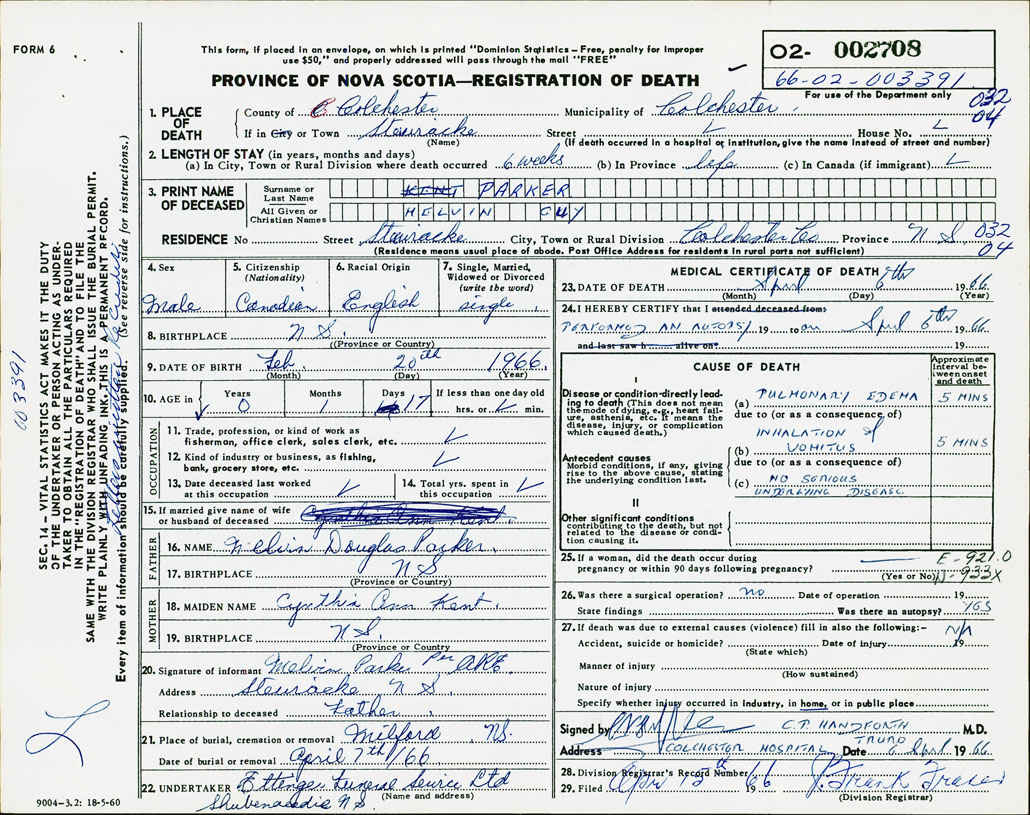 FORM 6
This form, if placed in an envelope, on which is printed "Dominion Statistics – Free, penalty for improper
use $50," and properly addressed will pass through the mail "FREE"
PROVINCE OF NOVA SCOTIA—REGISTRATION OF DEATH
O2- 002708
66-02-003391
For use of the Department only
032
04
1. PLACE OF DEATH
County of Colchester Municipality of Colchester
If in City or Town Stewiacke Street L House No. L
(Name) (If death occurred in a hospital or institution, give the name instead of street and number)
2. LENGTH OF STAY (in years, months and days)
(a) In City, Town or Rural Division where death occurred 6 weeks (b) In Province life (c) In Canada (if immigrant) L
3. PRINT NAME OF DECEASED
Surname or Last Name KENT PARKER
All Given or Christian Names MELVIN GUY
RESIDENCE No Street Stewiacke City, Town or Rural Division Colchester Co Province N S 032
04
(Residence means usual place of abode. Post Office Address for residents in rural parts not sufficient)
4. Sex Male
5. Citizenship (Nationality) Canadian
6. Racial Origin English
7. Single, Married, Widowed or Divorced (write the word) single
8. BIRTHPLACE N S
(Province or Country)
9. DATE OF BIRTH Feb 20th 1966
(Month) (Day) (Year)
10. AGE in Years 0 Months 1 Days 17 If less than one day old hrs. or L min.
OCCUPATION
11. Trade, profession, or kind of work as
fisherman, office clerk, sales clerk, etc. L
12. Kind of industry or business, as fishing,
bank, grocery store, etc. L
13. Date deceased last worked at this occupation L
14. Total yrs. spent in this occupation L
15. If married give name of wife
or husband of deceased Cynthia Ann Kent
FATHER
16. NAME Melvin Douglas Parker
17. BIRTHPLACE N S
(Province or Country)
MOTHER
18. MAIDEN NAME Cynthia Ann Kent
19. BIRTHPLACE N S
(Province or Country)
20. Signature of informant Melvin Parker per ARE
Address Stewiacke N S
Relationship to deceased Father
21. Place of burial, cremation or removal Milford NS.
Date of burial or removal April 7th/66
22. UNDERTAKER Ettenger Funeral Service Ltd
(Name and address)
Shubenacadie N S.
9004–3.2: 18-5-60
MEDICAL CERTIFICATE OF DEATH
23. DATE OF DEATH April 6th 1966
(Month) (Day) (Year)
24. I HEREBY CERTIFY that I attended deceased from:
PERFORMED AN AUTOPSY 19 to on April 6th 1966
and last saw h alive on 19
CAUSE OF DEATH
Approximate interval between onset and death
I
Disease or condition directly leading to death (This does not mean the mode of dying, e.g., heart failure, asthenia, etc. It means the disease, injury, or complication which caused death.)
(a) PULMONARY EDEMA 5 MINS
due to (or as a consequence of)
INHALATION of
(b) VOMITUS 5 MINS
Antecedent causes
Morbid conditions, if any, giving rise to the above cause, stating the underlying condition last.
due to (or as a consequence of)
(c) NO SERIOUS
UNDERLYING DISEASE
II
Other significant conditions
contributing to the death, but not related to the disease or condition causing it.
25. If a woman, did the death occur during
pregnancy or within 90 days following pregnancy?
(Yes or No)
E-921.0
N-933X
26. Was there a surgical operation? no Date of operation 19
State findings Was there an autopsy? YES
27. If death was due to external causes (violence) fill in also the following:– N/A
Accident, suicide or homicide? Date of injury 19
(State which)
Manner of injury
(How sustained)
Nature of injury
Specify whether injury occurred in industry, in home, or in public place
Signed by C.P. HANDFORTH M.D.
TRURO
Address COLCHESTER HOSPITAL Date 6 April 1966
28. Division Registrar's Record Number
29. Filed 66 J. Frank Fraser
(Division Registrar)
SEC. 14– VITAL STATISTICS ACT MAKES IT THE DUTY
OF THE UNDERTAKER OR PERSON ACTING AS UNDER-
TAKER TO OBTAIN ALL THE PARTICULARS REQUIRED
IN THE "REGISTRATION OF DEATH" AND TO FILE THE
SAME WITH THE DIVISION REGISTRAR WHO SHALL ISSUE THE BURIAL PERMIT.
WRITE PLAINLY WITH UNFADING INK. THIS IS A PERMANENT RECORD.
Every item of information should be carefully supplied. (See reverse side for instructions.)
003391